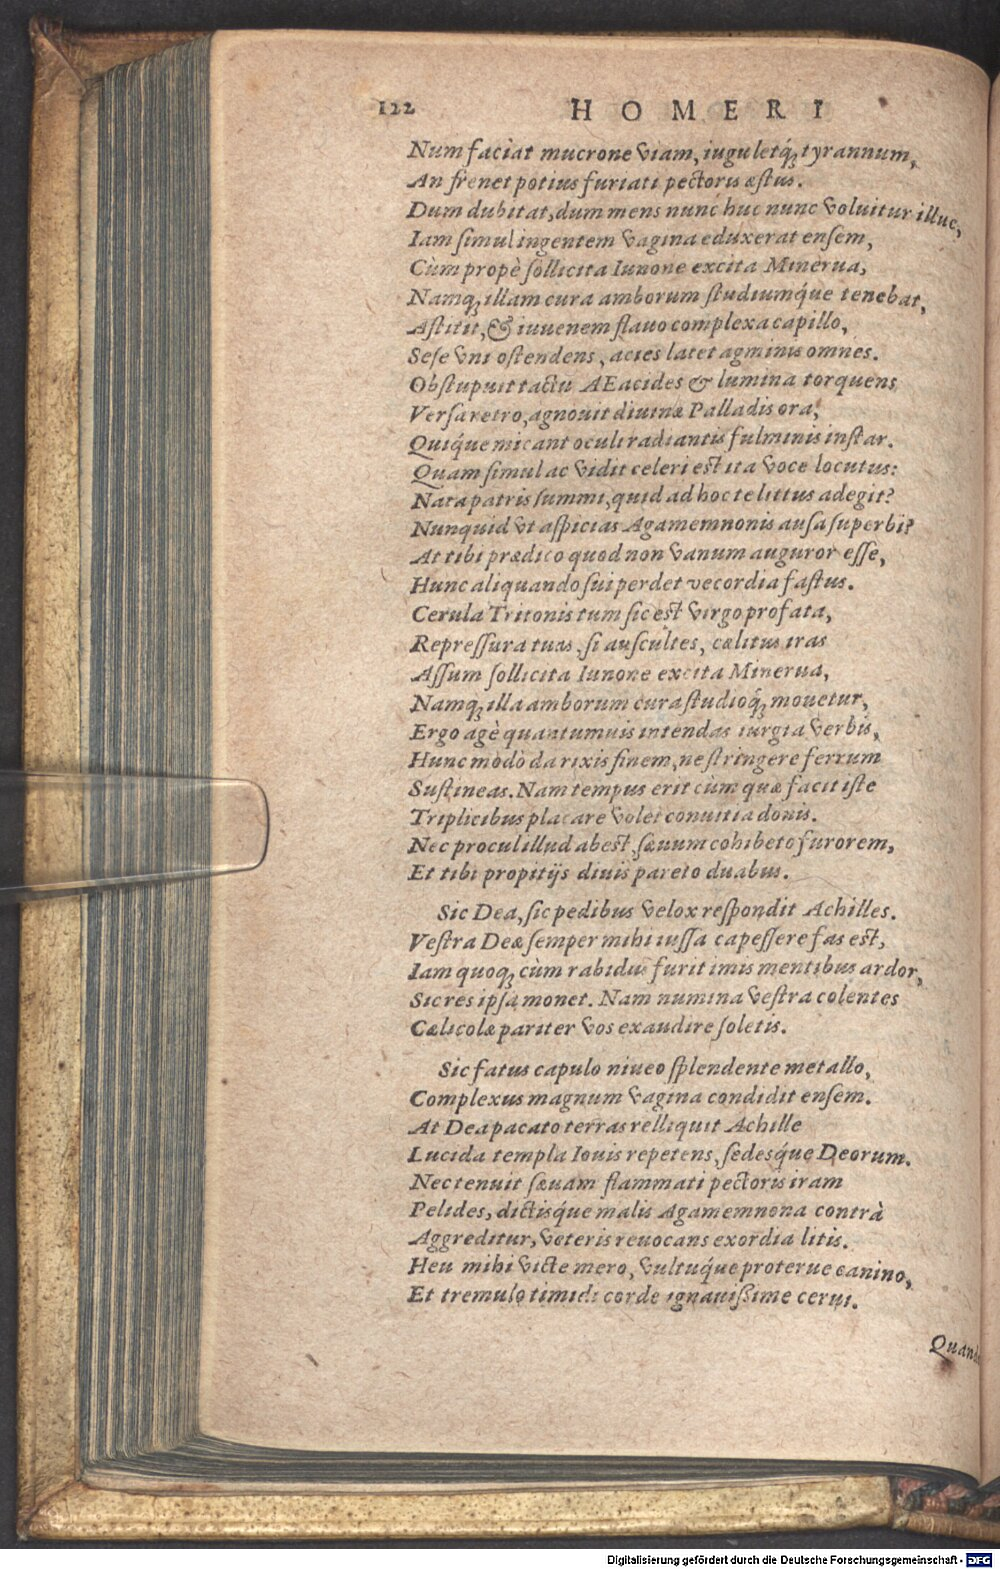 122 HOMERI
Num faciat mucrone viam, iuguletq́; tyrannum,
An frenet potius furiati pectoris æstus.
Dum dubitat, dum mens nunc huc nunc voluitur illuc,
Iam simul ingentem vagina eduxerat ensem,
Cùm propè sollicita Iunone excita Minerua,
Namq; illam cura amborum studiumq́ue tenebat,
Astitit, & iuuenem flauo complexa capillo,
Sese vni ostendens, acies latet agminis omnes.
Obstupuit tactu AEacides & lumina torquens
Versa retro, agnouit diuinæ Palladis ora,
Quiq́ue micant oculi radiantis fulminis instar.
Quam simul ac vidit celeri est ita voce locutus:
Nata patris summi, quid ad hoc te littus adegit?
Nunquid vt aspicias Agamemnonis ausa superbi?
At tibi prædico quod non vanum auguror esse,
Hunc aliquando sui perdet vecordia fastus.
Cerula Tritonis tum sic est virgo profata,
Repressura tuas, si auscultes, cælitus iras
Assum sollicita Iunone excita Minerua,
Namq; illa amborum cura studioq́; mouetur,
Ergo agè quantumuis intendas iurgia verbis,
Hunc modò da rixis finem, ne stringere ferrum
Sustineas. Nam tempus erit cùm quæ facit iste
Triplicibus placare volet conuitia donis.
Nec procul illud abest, sæuum cohibeto furorem,
Et tibi propitijs diuis pareto duabus.
Sic Dea, sic pedibus velox respondit Achilles.
Vestra Deæ semper mihi iussa capessere fas est,
Iam quoq; cùm rabidus furit imis mentibus ardor,
Sic res ipsa monet. Nam numina vestra colentes
Cælicolæ pariter vos exaudire soletis.
Sic fatus capulo niueo splendente metallo,
Complexus magnum vagina condidit ensem.
At Dea pacato terras relliquit Achille
Lucida templa Iouis repetens, sedesq́ue Deorum.
Nec tenuit sæuam flammati pectoris iram
Pelides, dictisq́ue malis Agamemnona contrà
Aggreditur, veteris reuocans exordia litis.
Heu mihi victe mero, vultuq́ue proterue canino,
Et tremulo timidi corde ignauissime cerui.
Quando
Digitalisierung gefördert durch die Deutsche Forschungsgemeinschaft - DFG